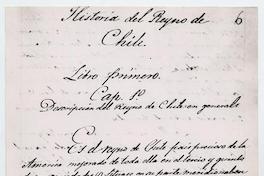 Historia del Reyno de
6
Chile.
Libro primero.
Cap. 1º
Descripcion del Reyno de Chile en general
Es el reyno de Chile precioso de la
America mejorado de toda ella en el tercio y quinto
parte meridional